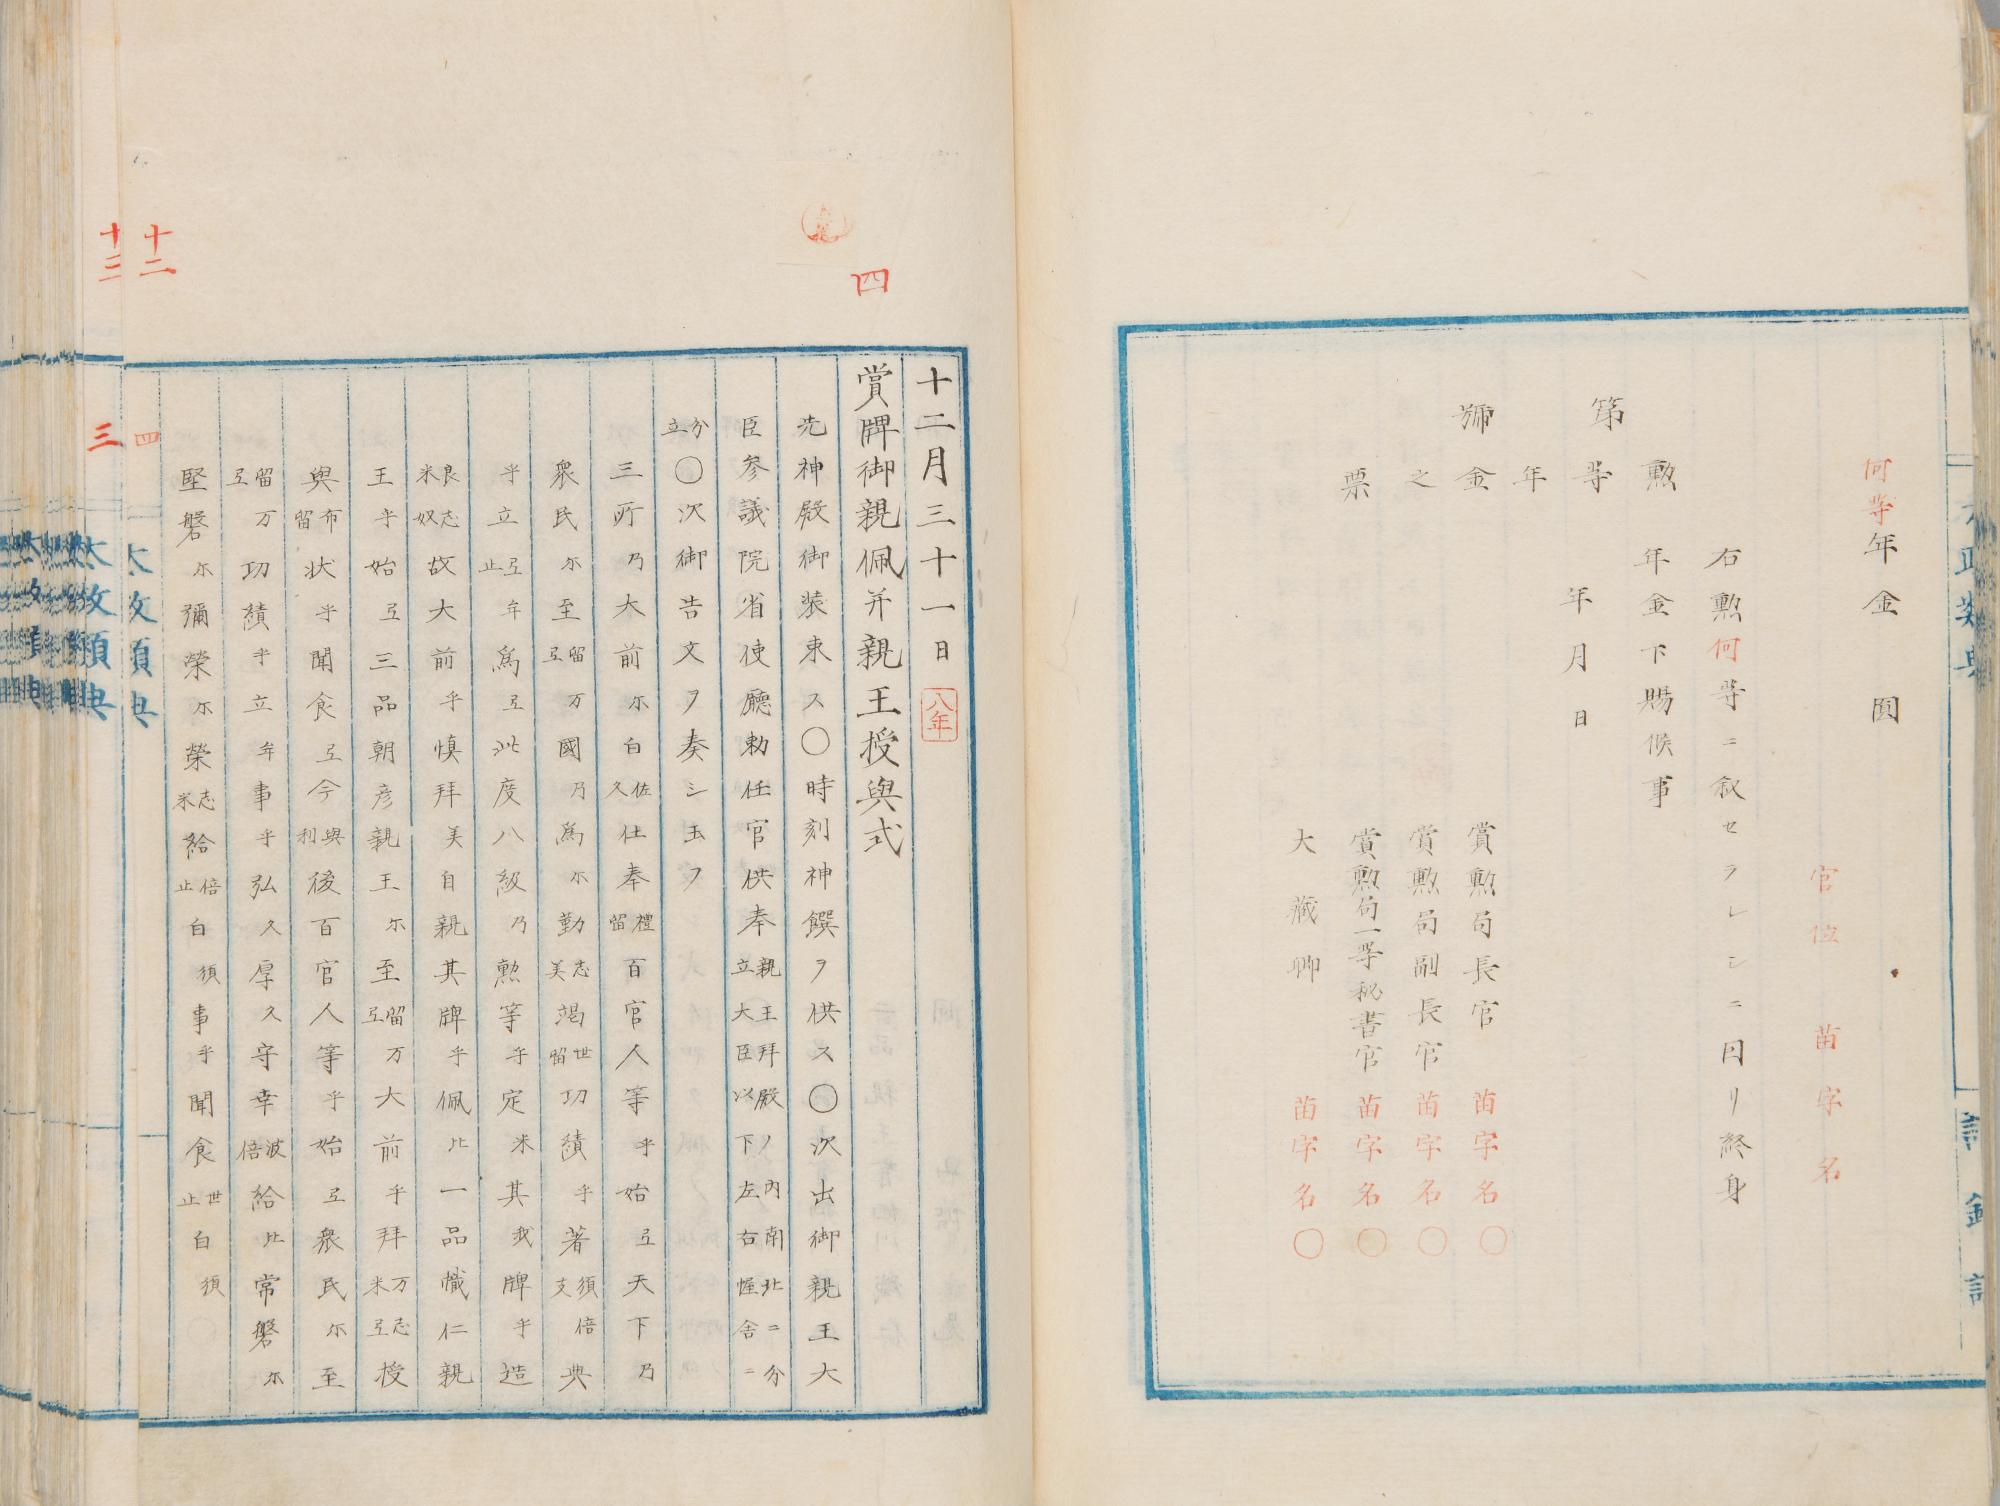 何等年金　圓
官位　苗字名
右勲何等ニ叙セラレシニ因リ終身
年金下賜候事
年月日
第　號
勲等年金之票
賞勲局長官　苗字名〇
賞勲局副長官　苗字名〇
賞勲局一等秘書官　苗字名〇
大藏卿　苗字名〇
四
十二月三十一日　八年
賞牌御親佩并親王授與式
先神殿御裝束ス〇時刻神饌ヲ供ス〇次出御親王大
臣参議院省使廳勅任官供奉親王拜殿ノ内南北ニ分立大臣以下左右幄舍ニ
分立〇次御告文ヲ奏シ玉フ
三所乃大前尓白佐久仕奉禮留百官人等乎始弖天下乃
衆民尓至留弖万國乃爲尓勤志美竭世留功績乎著須倍支典
乎立弖止牟爲弖此度八級乃勲等乎定米其我牌乎造
良米志奴故大前乎愼拜美自親其牌乎佩比一品幟仁親
王乎始弖三品朝彦親王尓至留弖万大前乎拜万米志弖授
與布留状乎聞食弖今與利後百官人等乎始弖衆民尓至
留弖万功績乎立牟事乎弘久厚久守幸波倍給比常磐尓
堅磐尓彌榮尓榮志米給倍止白須事乎聞食世止白須
十二
四
太政類典
十三
三
太政類典